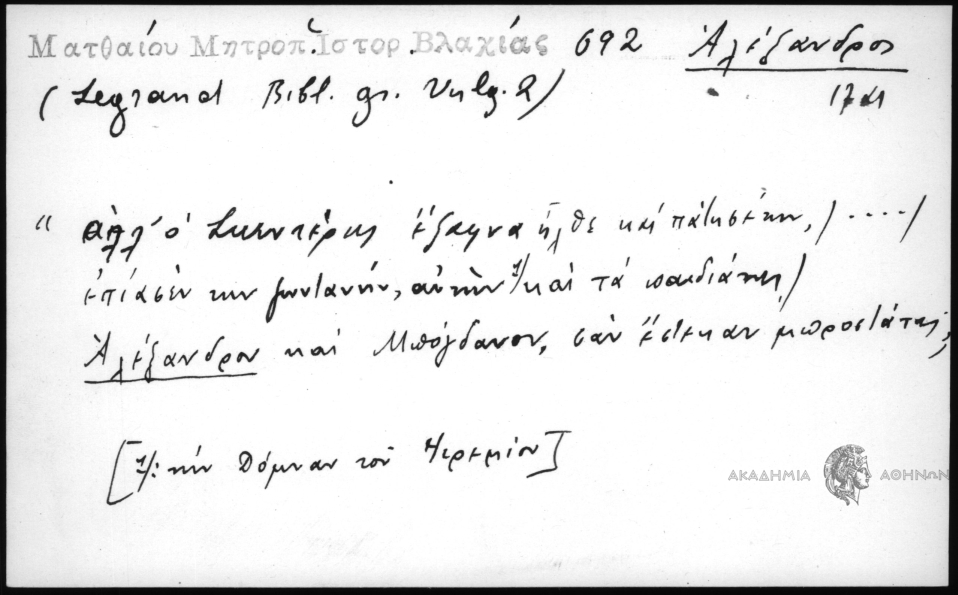 Ματθαίου Μητροπ. Ἱστορ. Βλαχίας 692 Ἀλέξανδρος
(Legrand Bibl. gr. Vulg. 2)
"ἀλλ' ὁ Σκεντέρης ἔξαφνα ἦλθε καὶ πάτησέ την, /....../
ἐπίασέν την ζωντανήν, αὐτὴν 1/ καὶ τὰ παιδιά της /
Ἀλέξανδρον καὶ Μπόγδανον, σὰν ἔστεκαν μπροστά της,
[1/: τὴν Δόμναν τοῦ Ἱερεμίου]
ΑΚΑΔΗΜΙΑ ΑΘΗΝΩΝ